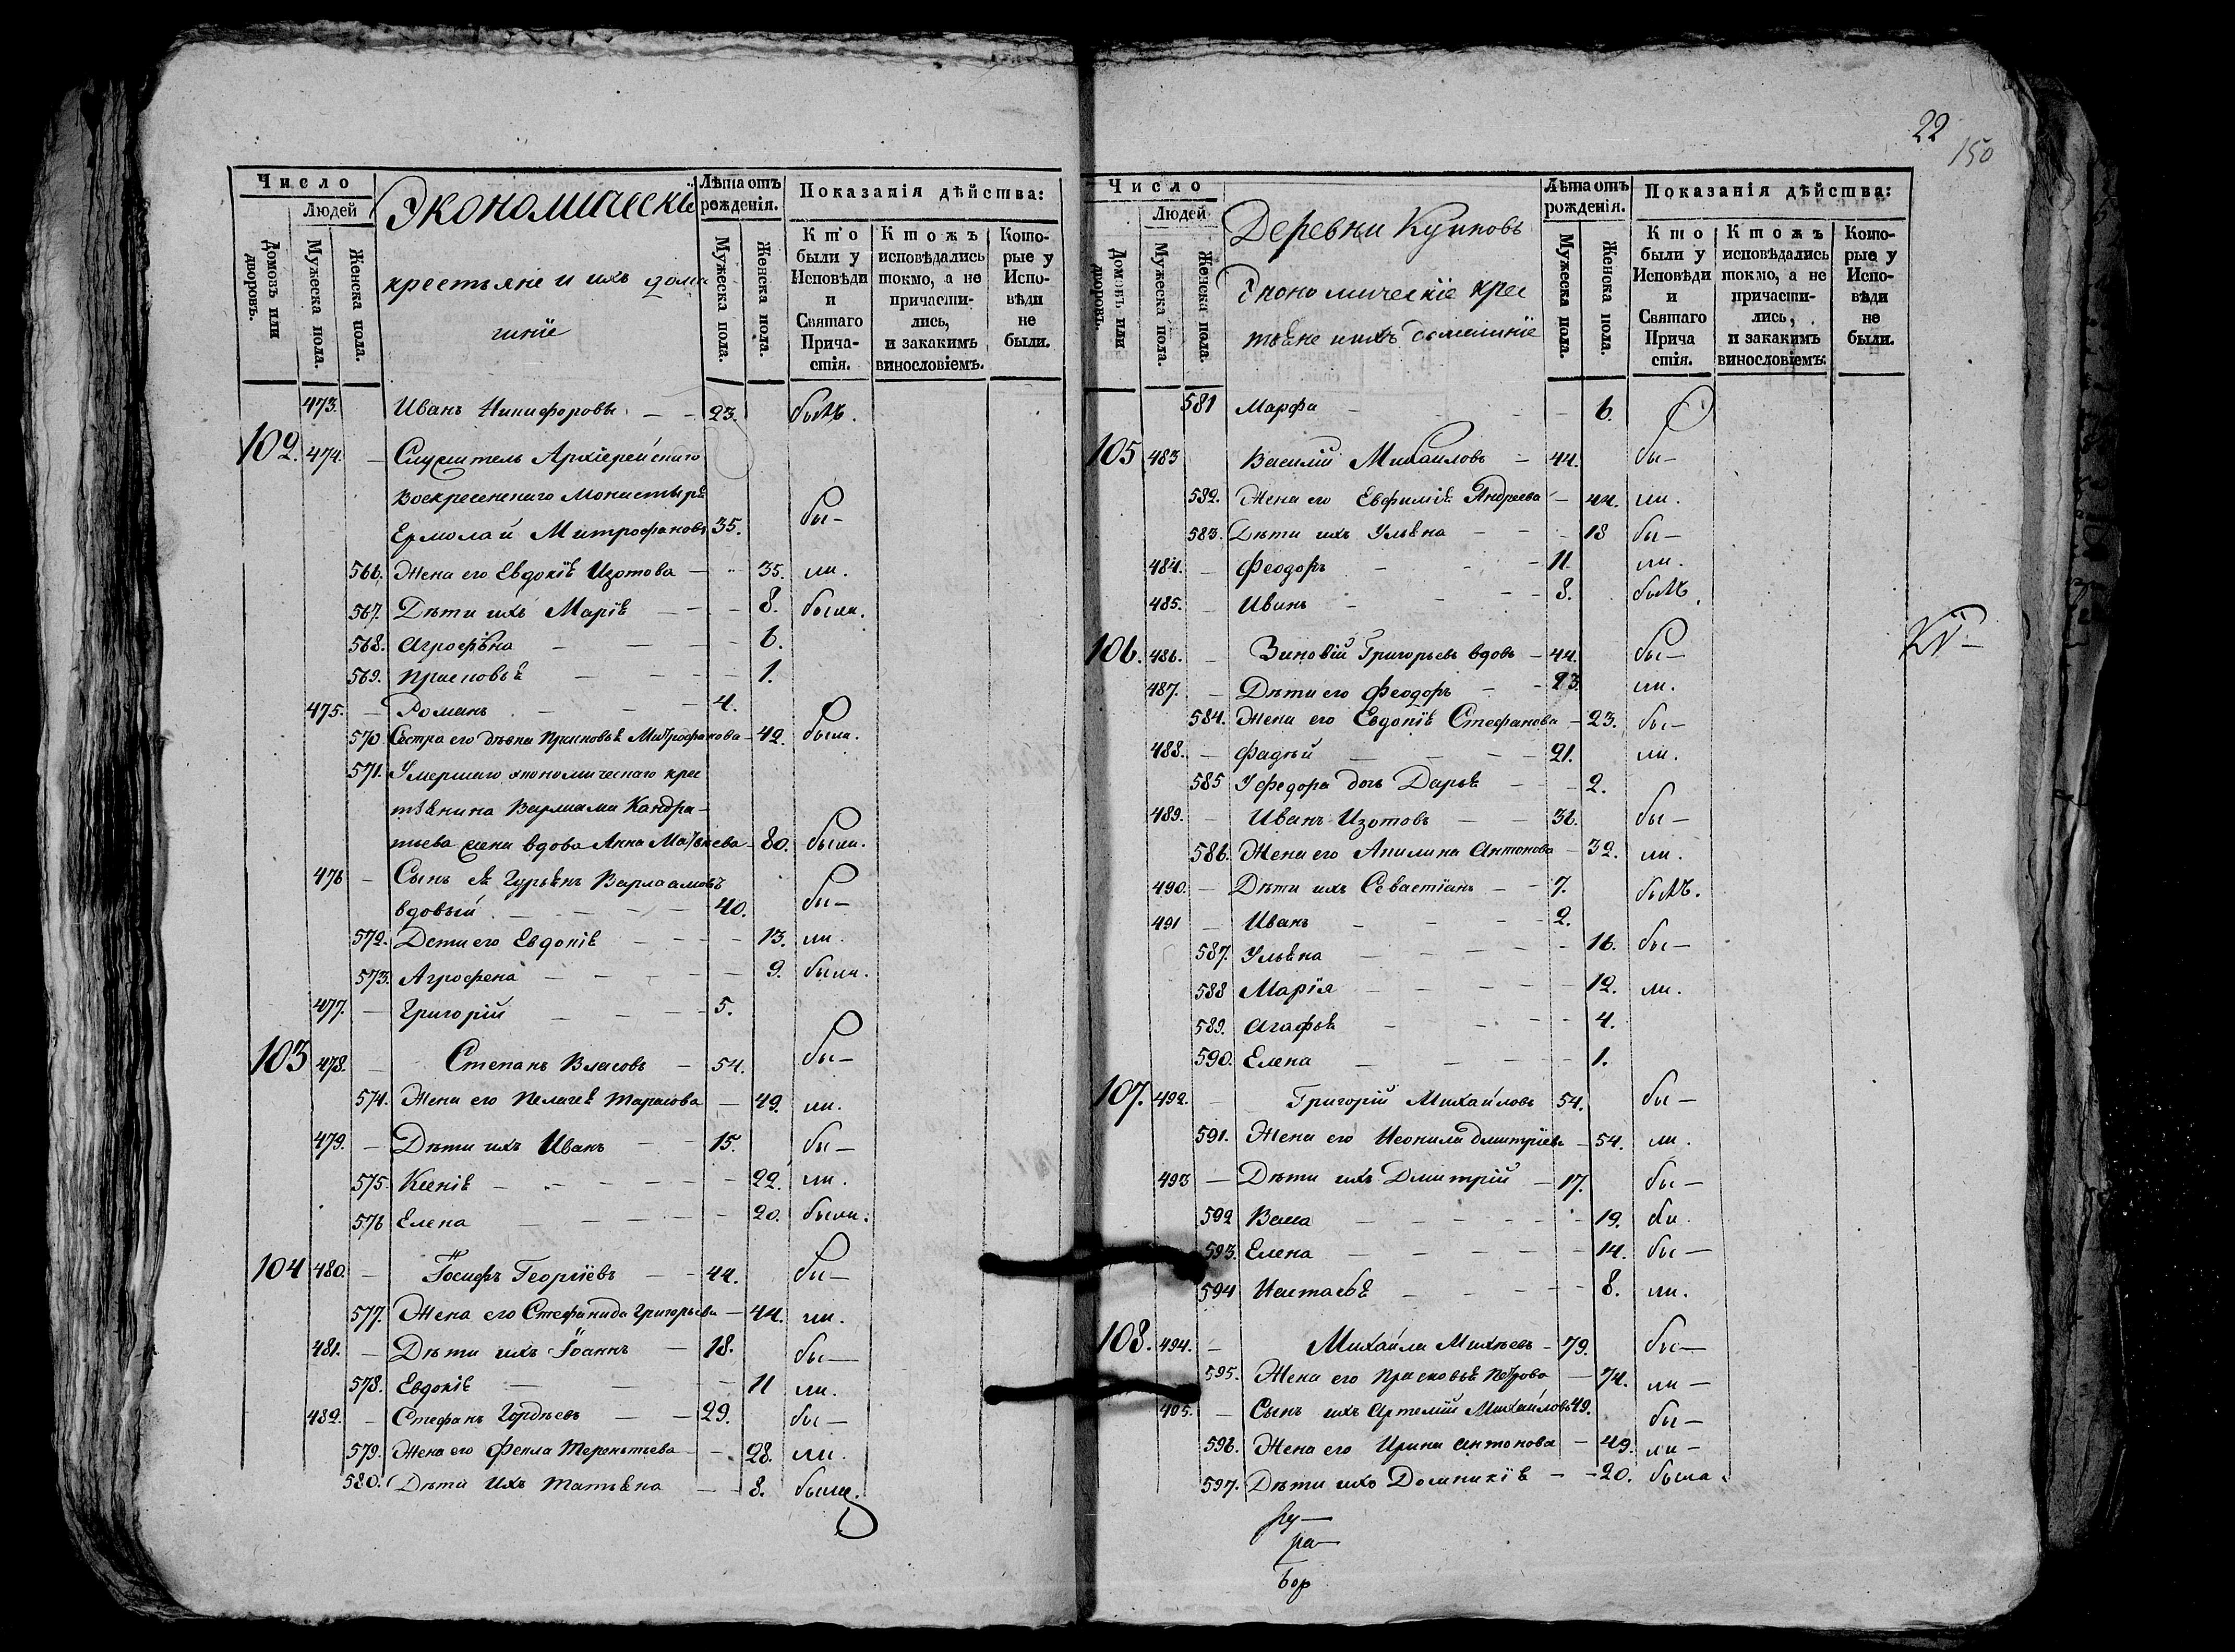 Число
Людей
Домовъ или дворовъ.
Мужеска пола.
Женска пола.
Экономическіе
крестьяне и ихъ дома
шніе
Лѣта отъ рожденія.
Мужеска пола.
Женска пола.
Показанія дѣйства:
Кто были у Исповѣди и Святаго Прича-стія.
Ктожъ исповѣдались токмо, а не причасти-лись, и закакимъ винословіемъ.
Кото-рые у Испо-вѣди не были.
473. Иванъ Никифоровъ — — 23. былъ.
102. 474. — Служитель Архіерейскаго
Воскресенскаго Монастырѣ
Ермолай Митрофановъ 35. бы—
566. Жена его Евдокіѣ Изотова — 35. ли.
567. Дѣти ихъ Маріѣ — — — 8. были.
568. Агрофѣна — — — — 6.
569. Прасковьѣ — — — 1.
475. — Романъ — — — 4.
570. Сестра его дѣвка Прасковьѣ Митрофанова — 42. была.
571. Умершаго экономическаго крес
тьѣнина Варлаама Кандра—
тьева жена вдова Анна Матвѣева — 80. была.
476 — Сынъ еѣ Гурьѣнъ Варлаамовъ
вдовый — — — — 40. бы—
572. Дети его Евдокіѣ — — — 13. ли.
573. Агрофена — — — — 9. были.
477. — Григорій — — — 5.
103 478. — Степанъ Власовъ — 54. бы—
574. Жена его Пелагеѣ Тарасова — 49. ли.
479. — Дѣти ихъ Иванъ — — 15. бы—
575. Ксеніѣ — — — — — 22. ли.
576 Елена — — — — — 20. были.
104 480. — Іосифъ Георгіевъ — — 44. бы—
577. Жена его Стефанида Григорьева — 44. ли.
481. — Дѣти ихъ Іоаннъ — 18. бы—
578. Евдокіѣ — — — 11 ли.
482. — Стефанъ Гордѣевъ — — 29. бы—
579. Жена его Фекла Терентьева — 28. ли.
580. Дѣти Ихъ Татьѣна — — 8. были.
22
150
Число
Людей
Домовъ или дворовъ.
Мужеска пола.
Женска пола.
Деревни Куиковъ
Экономическіе крес
тьѣне и ихъ домашніе
Лѣта отъ рожденія.
Мужеска пола.
Женска пола.
Показанія дѣйства:
Кто были у Исповѣди и Святаго Прича стія.
Ктожъ исповѣдались токмо, а не причасти-лись, и закакимъ винословіемъ.
Кото-рые у Испо-вѣди не были.
581 Марфа — — — 6.
105 483 Василій Михайловъ — 44. бы—
582. Жена его Евфиміѣ Андреева — 44. ли.
583. Дѣти ихъ Ульѣна — — — 18 бы—
484. — Феодоръ — — — 11. ли.
485. — Иванъ — — — 8. былъ.
106. 486. — Зиновій Григорьевъ вдовъ — 44. бы—
487. — Дѣти его Феодоръ — — 23. ли.
584. Жена его Евдокіѣ Стефанова — 23. бы—
488. — Фадѣй — — — 21. ли.
585 У Федора дочь Дарьѣ — — 2.
489. — Иванъ Изотовъ — — 36. бы—
586. Жена его Акилина Антонова — 32. ли.
490. — Дѣти ихъ Севастіанъ — — 7. былъ.
491 — Иванъ — — — 2.
587. Ульѣна — — — — 16. бы—
588 Марія — — — — 12. ли.
589. Агафьѣ — — — 4.
590. Елена — — — 1.
107. 492. — Григорій Михайловъ 54. бы—
591. Жена его Неонила Дмитріева — 54. ли.
493 — Дѣти ихъ Дмитрій — 17. бы—
592 Васса — — — — — 19. ли.
593. Елена — — — — — 14. бы—
594 Настасьѣ — — — — 8. ли.
108. 494. — Михайла Михѣевъ — 79. бы—
595. Жена его Прасковьѣ Петрова — 74. ли —
495. — Сынъ ихъ Артемій Михайловъ 49. бы—
596. Жена его Ирина Антонова — 49. ли —
597. Дѣти ихъ Домникіѣ — — 20. была.